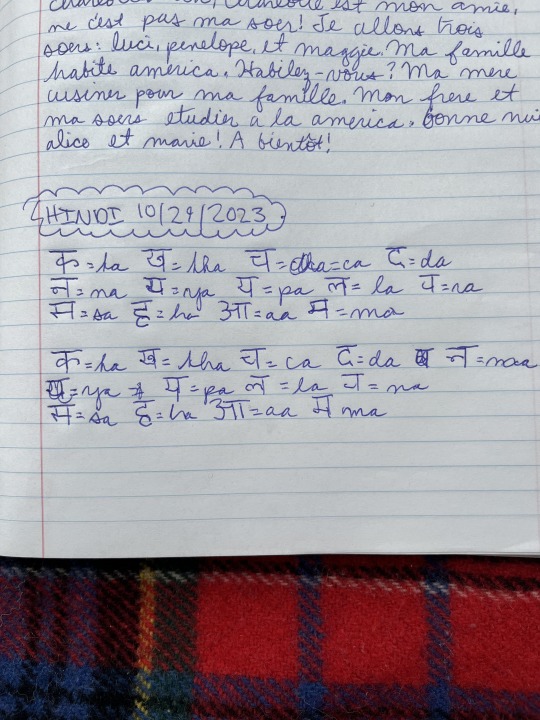 est mon amie,
ne c'est pas ma soer! Je allons trois
soers: luci, penelope, et maggie. Ma famille
habite america. Habilez-vous? Ma mere
cusiner pour ma famille. Mon frere et
ma soers etudier a la america. bonne nui
alice et marie! A bientôt!
HINDI 10/29/2023
क = ka ख = kha च = ca द = da
न = na = nya प = pa ल = la = na
स = sa ह = ha आ = aa म = ma
क = ka ख = kha च = ca द = da न = na
= nya प = pa ल = la = na
स = sa ह = ha आ = aa म ma